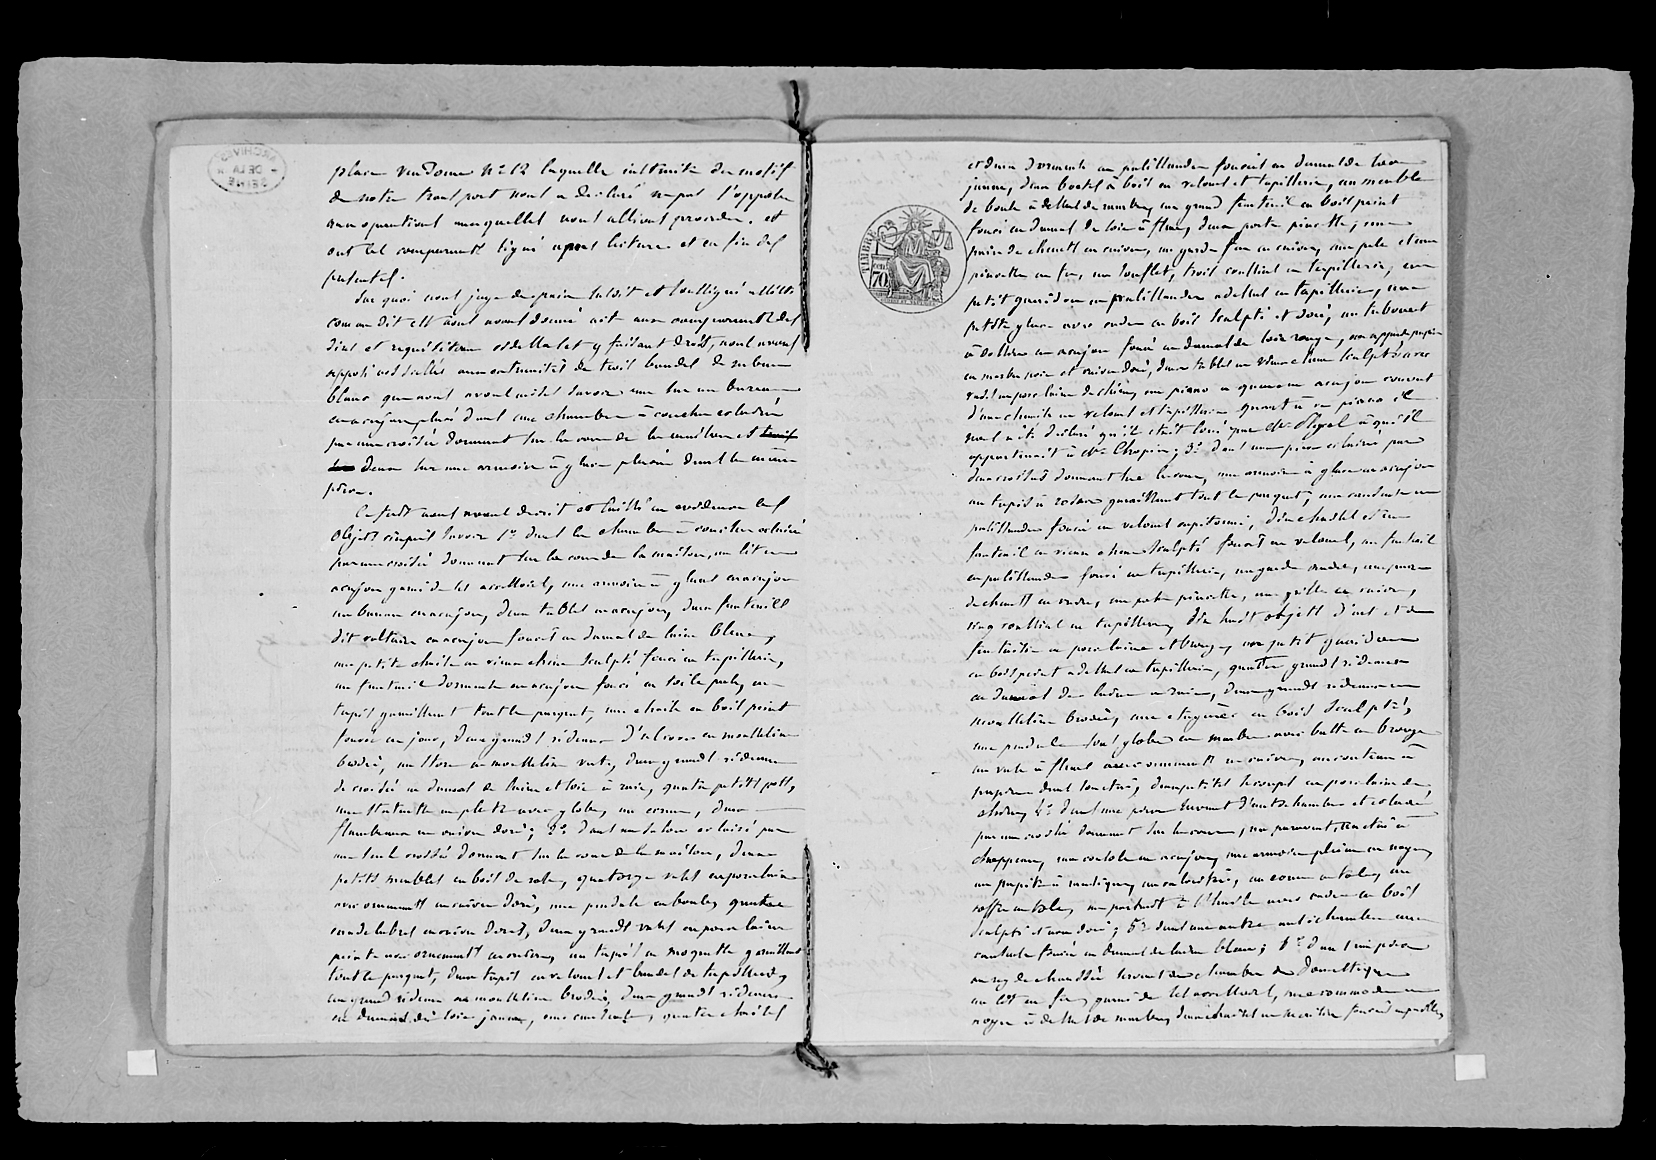 ARCHIVES
DE LA
SEINE
place Vendome No 12 laquelle instruite du motif
de notre transport nous a déclaré ne pas s'opposer
aux opérations auxquelles nous allions procéder. et
ont les comparants signé après lecture et en fin des
présentes.
Sur quoi nous juge de paix susdit et soussigné assisté
comme dit est avons donné acte aux comparants des
dires et réquisitions et de
apposé nos scellés aux extrémités de trois bandes de ruban
blanc que nous avons mises savoir une sur un bureau
en acajou placé dans une chambre à coucher éclairée
par une croisée donnant sur la cour de la maison et
deux sur une armoire à glace placée dans la même
pièce.
Ce fait nous avons décrit et laissé en évidence les
objets ci après savoir 1o dans la chambre à coucher éclairée
par une croisée donnant sur la cour de la maison, un lit en
acajou garni de ses accessoires, une armoire à glace en acajou
un bureau en acajou, deux tables en acajou, deux fauteuils
dit voltaire en acajou foncés en damas de laine bleue,
une petite chaise en vieux chêne sculpté foncée en tapisserie,
un fauteuil dormeuse en acajou foncé en toile perse, un
tapis garnissant tout le parquet, une chaise en bois peint
foncée en jonc, deux grands rideaux d'alcove en mousseline
brodée, un store en mousseline verte, deux grands rideaux
de croisée en damas de laine et soie à raie, quatre petits pots,
une statuette en platre avec globe, un cornet, deux
flambeaux en cuivre doré; 2o dans un salon éclairé par
une seule croisée donnant sur la cour de la maison, deux
petits meubles en bois de rose, quatorze vases en porcelaine
avec ornements en cuivre doré, une pendule en boule, quatre
candelabres en cuivre dorés, deux grands vases en porcelaine
peinte avec ornements en cuivre, un tapis en moquette garnissant
tout le parquet, deux tapis en velours et bandes de tapisserie,
un grand rideau en mousseline brodée, deux grands rideaux
en damas de soie jaune, une causeuse, quatre chaises
TIMBRE
70
et deux dormeuses en palissandre foncés en damas de soie
jaune, deux boites à bois en velours et tapisserie, un meuble
de boule à dessus de marbre, un grand fauteuil en bois peint
foncé en damas de soie à fleurs, deux porte pincettes, une
paire de chenets en cuivre, un garde feu en cuivre, une pelle et une
pincette en fer, un soufflet, trois coussins en tapisserie, un
petit guéridon en palissandre à dessus en tapisserie, une
petite glace avec cadre en bois sculpté et doré, un tabouret
en acajou foncé en damas de soie rouge,
en marbre noir et cuivre doré, deux tables en vieux chêne sculpté avec
en porcelaine de chine, un piano à queue en acajou couvert
d'une chemise en velours et tapisserie quant à ce piano il
nous a été déclaré qu'il était loué par Mr Pleyel
appartenait à Mr Chopin; 3o dans une pièce éclairée par
deux croisées donnant sur la cour, une armoire à glace en acajou
un tapis à rosaces garnissant tout le parquet, une causeuse en
palissandre foncée en velours
fauteuil en vieux chêne sculpté foncés en velours, un fauteuil
en palissandre foncé en tapisserie, un garde cendre, une paire
de chenets en cuivre, une pelle pincette, une grille en cuivre,
cinq coussins en tapisserie, dix huit objets d'art et de
fantaisie en porcelaine et bronze, un petit guéridon
en bois peint à dessus en tapisserie, quatre grands rideaux
en damas de laine et soie, deux grands rideaux en
mousseline brodée, une etagère en bois sculpté,
une pendule sous globe en marbre avec buste en bronze
un vase à fleurs avec ornements en cuivre, un couteau à
papier dans son étui, deux petites soucoupes en porcelaine de
chine, 4o dans une pièce servant d'antichambre et éclairée
par une croisée donnant sur la cour, un paravent, un étui à
chapeau, une console en acajou, une armoire pleine en noyer,
un pupitre à musique, un calorifère,
coffre en tole, un portrait à l'huile avec cadre en bois
sculpté et non doré; 5o dans une autre antichambre une
causeuse foncée en damas de laine bleue; 6o dans une pièce
au rez de chaussée servant de chambre de domestique
un lit en fer, garni de ses accessoires, une commode en
noyer à dessus de marbre, deux chaises en merisier foncées en paille,